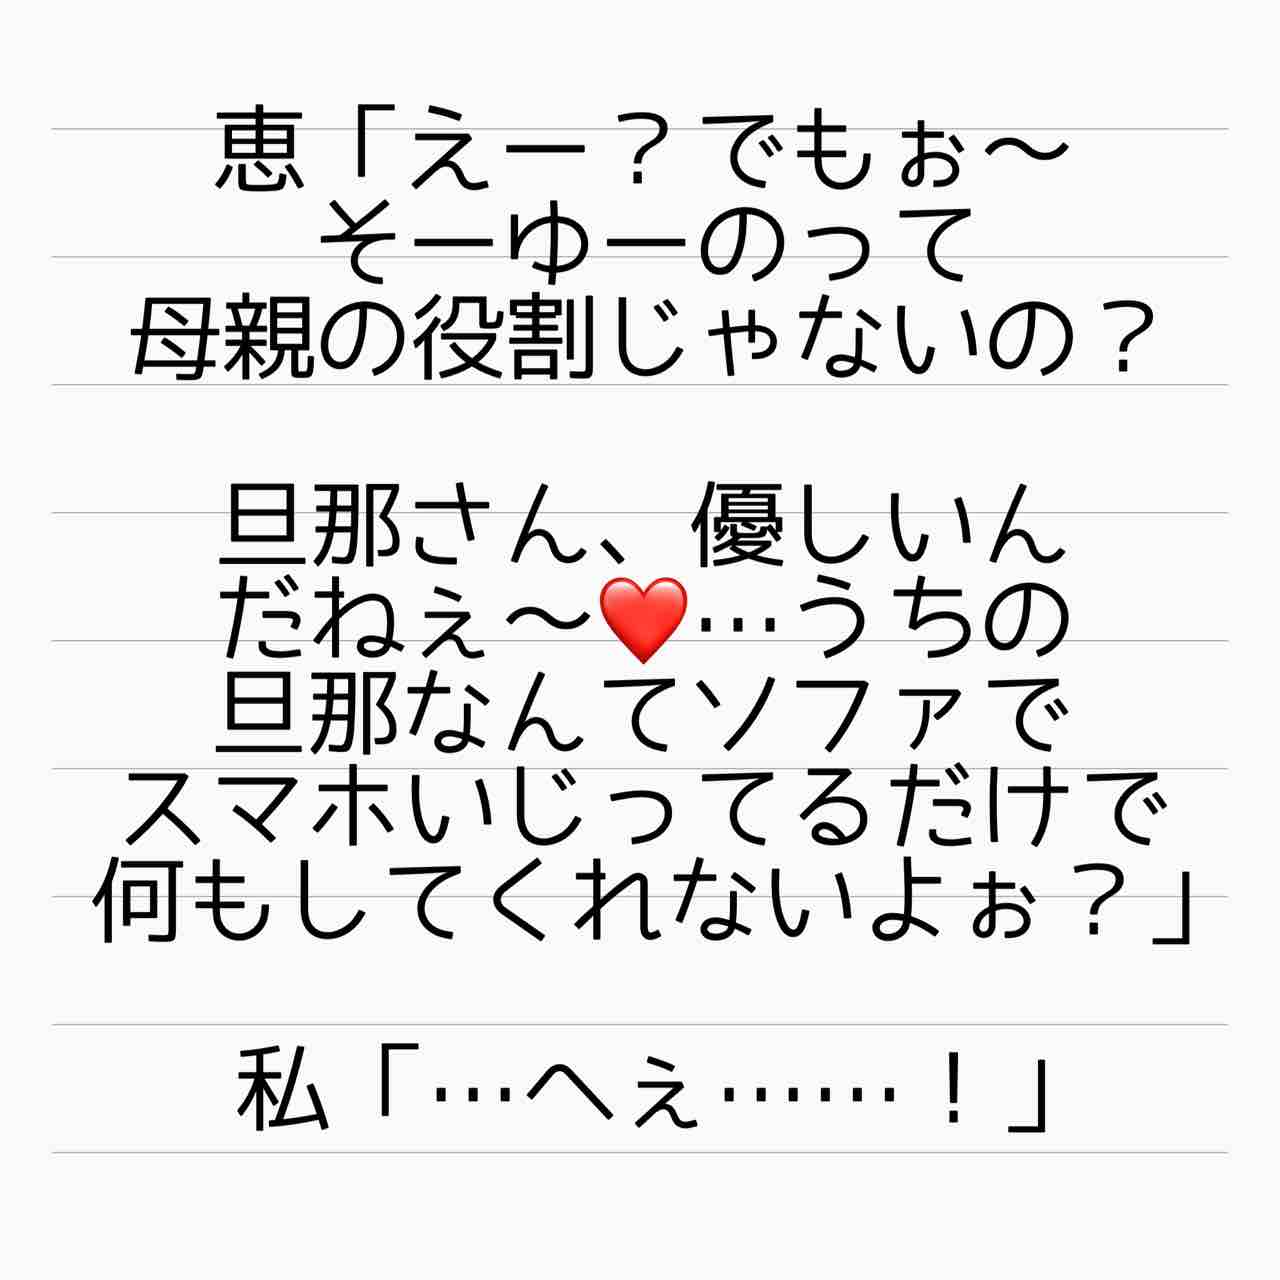 恵「えー？でもぉ〜
そーゆーのって
母親の役割じゃないの？
旦那さん、優しいん
だねぇ〜❤️…うちの
旦那なんてソファで
スマホいじってるだけで
何もしてくれないよぉ？」
私「…へぇ……！」